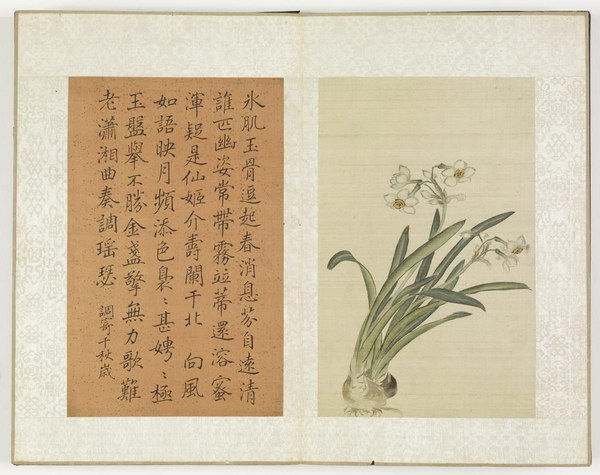 氷肌玉骨逗起春消息芬自遠清
誰匹幽姿常帶霧竝蒂還溶蜜
渾疑是仙姬介壽闌干北 向風
如語映月頻添色裊〻甚娉〻極
玉盤舉不勝金盞擎無力歌難
老瀟湘曲奏調瑤瑟 調寄千秋歲